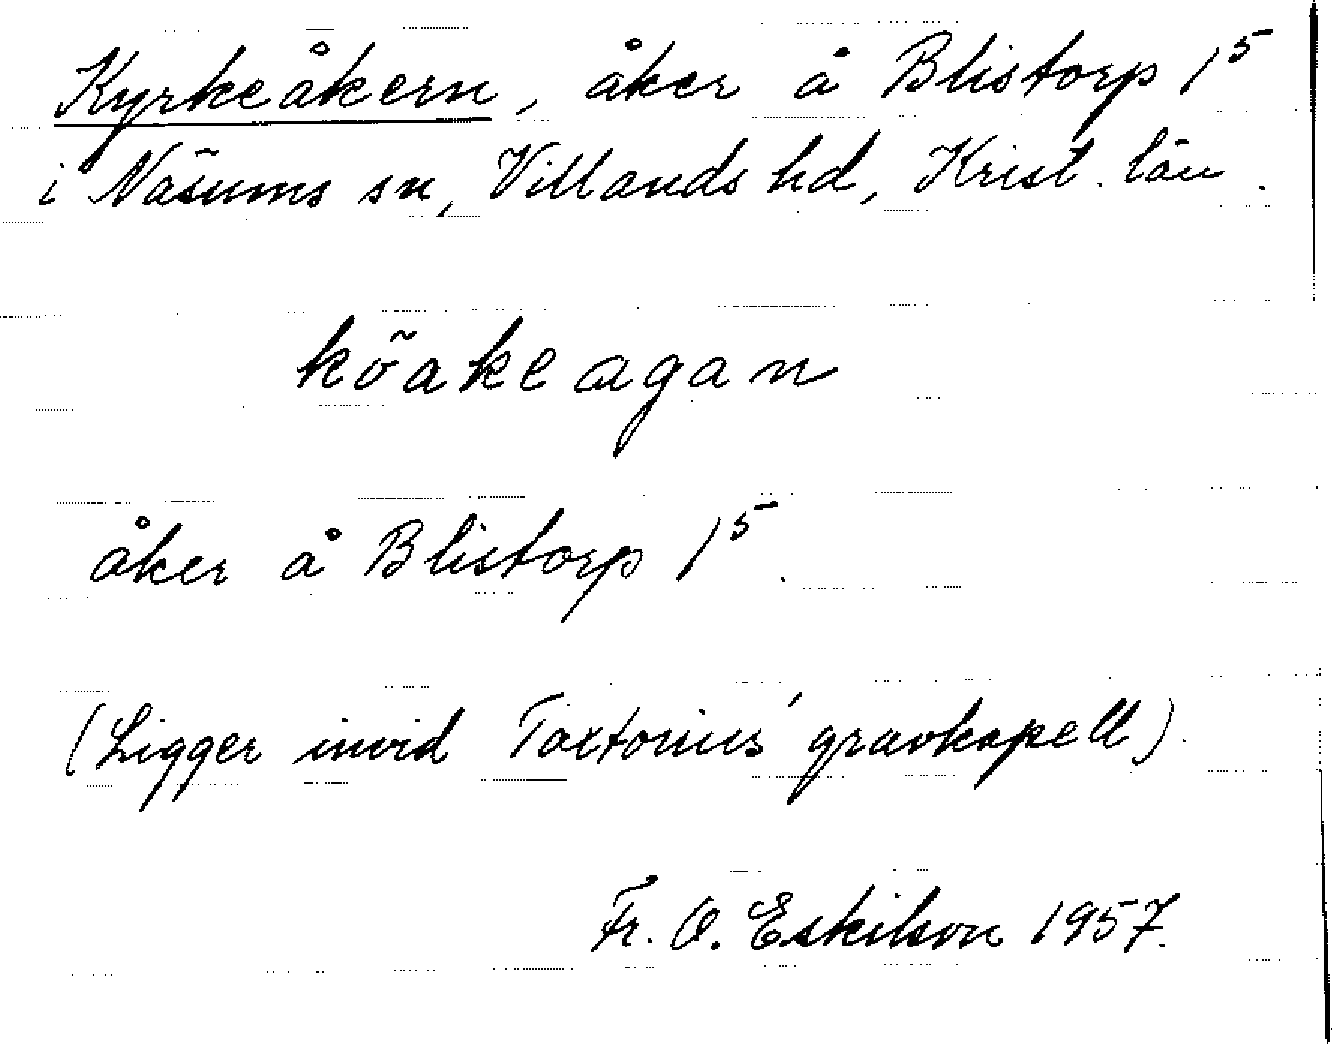 Kyrkeåkern, åker å Blistorp 1⁵
i Näsums sn, Villands hd, Krist. län.
kõakeagan
åker å Blistorp 1⁵.
(Ligger invid Taxtorius' gravkapell).
Fr. O. Eskilson 1957.